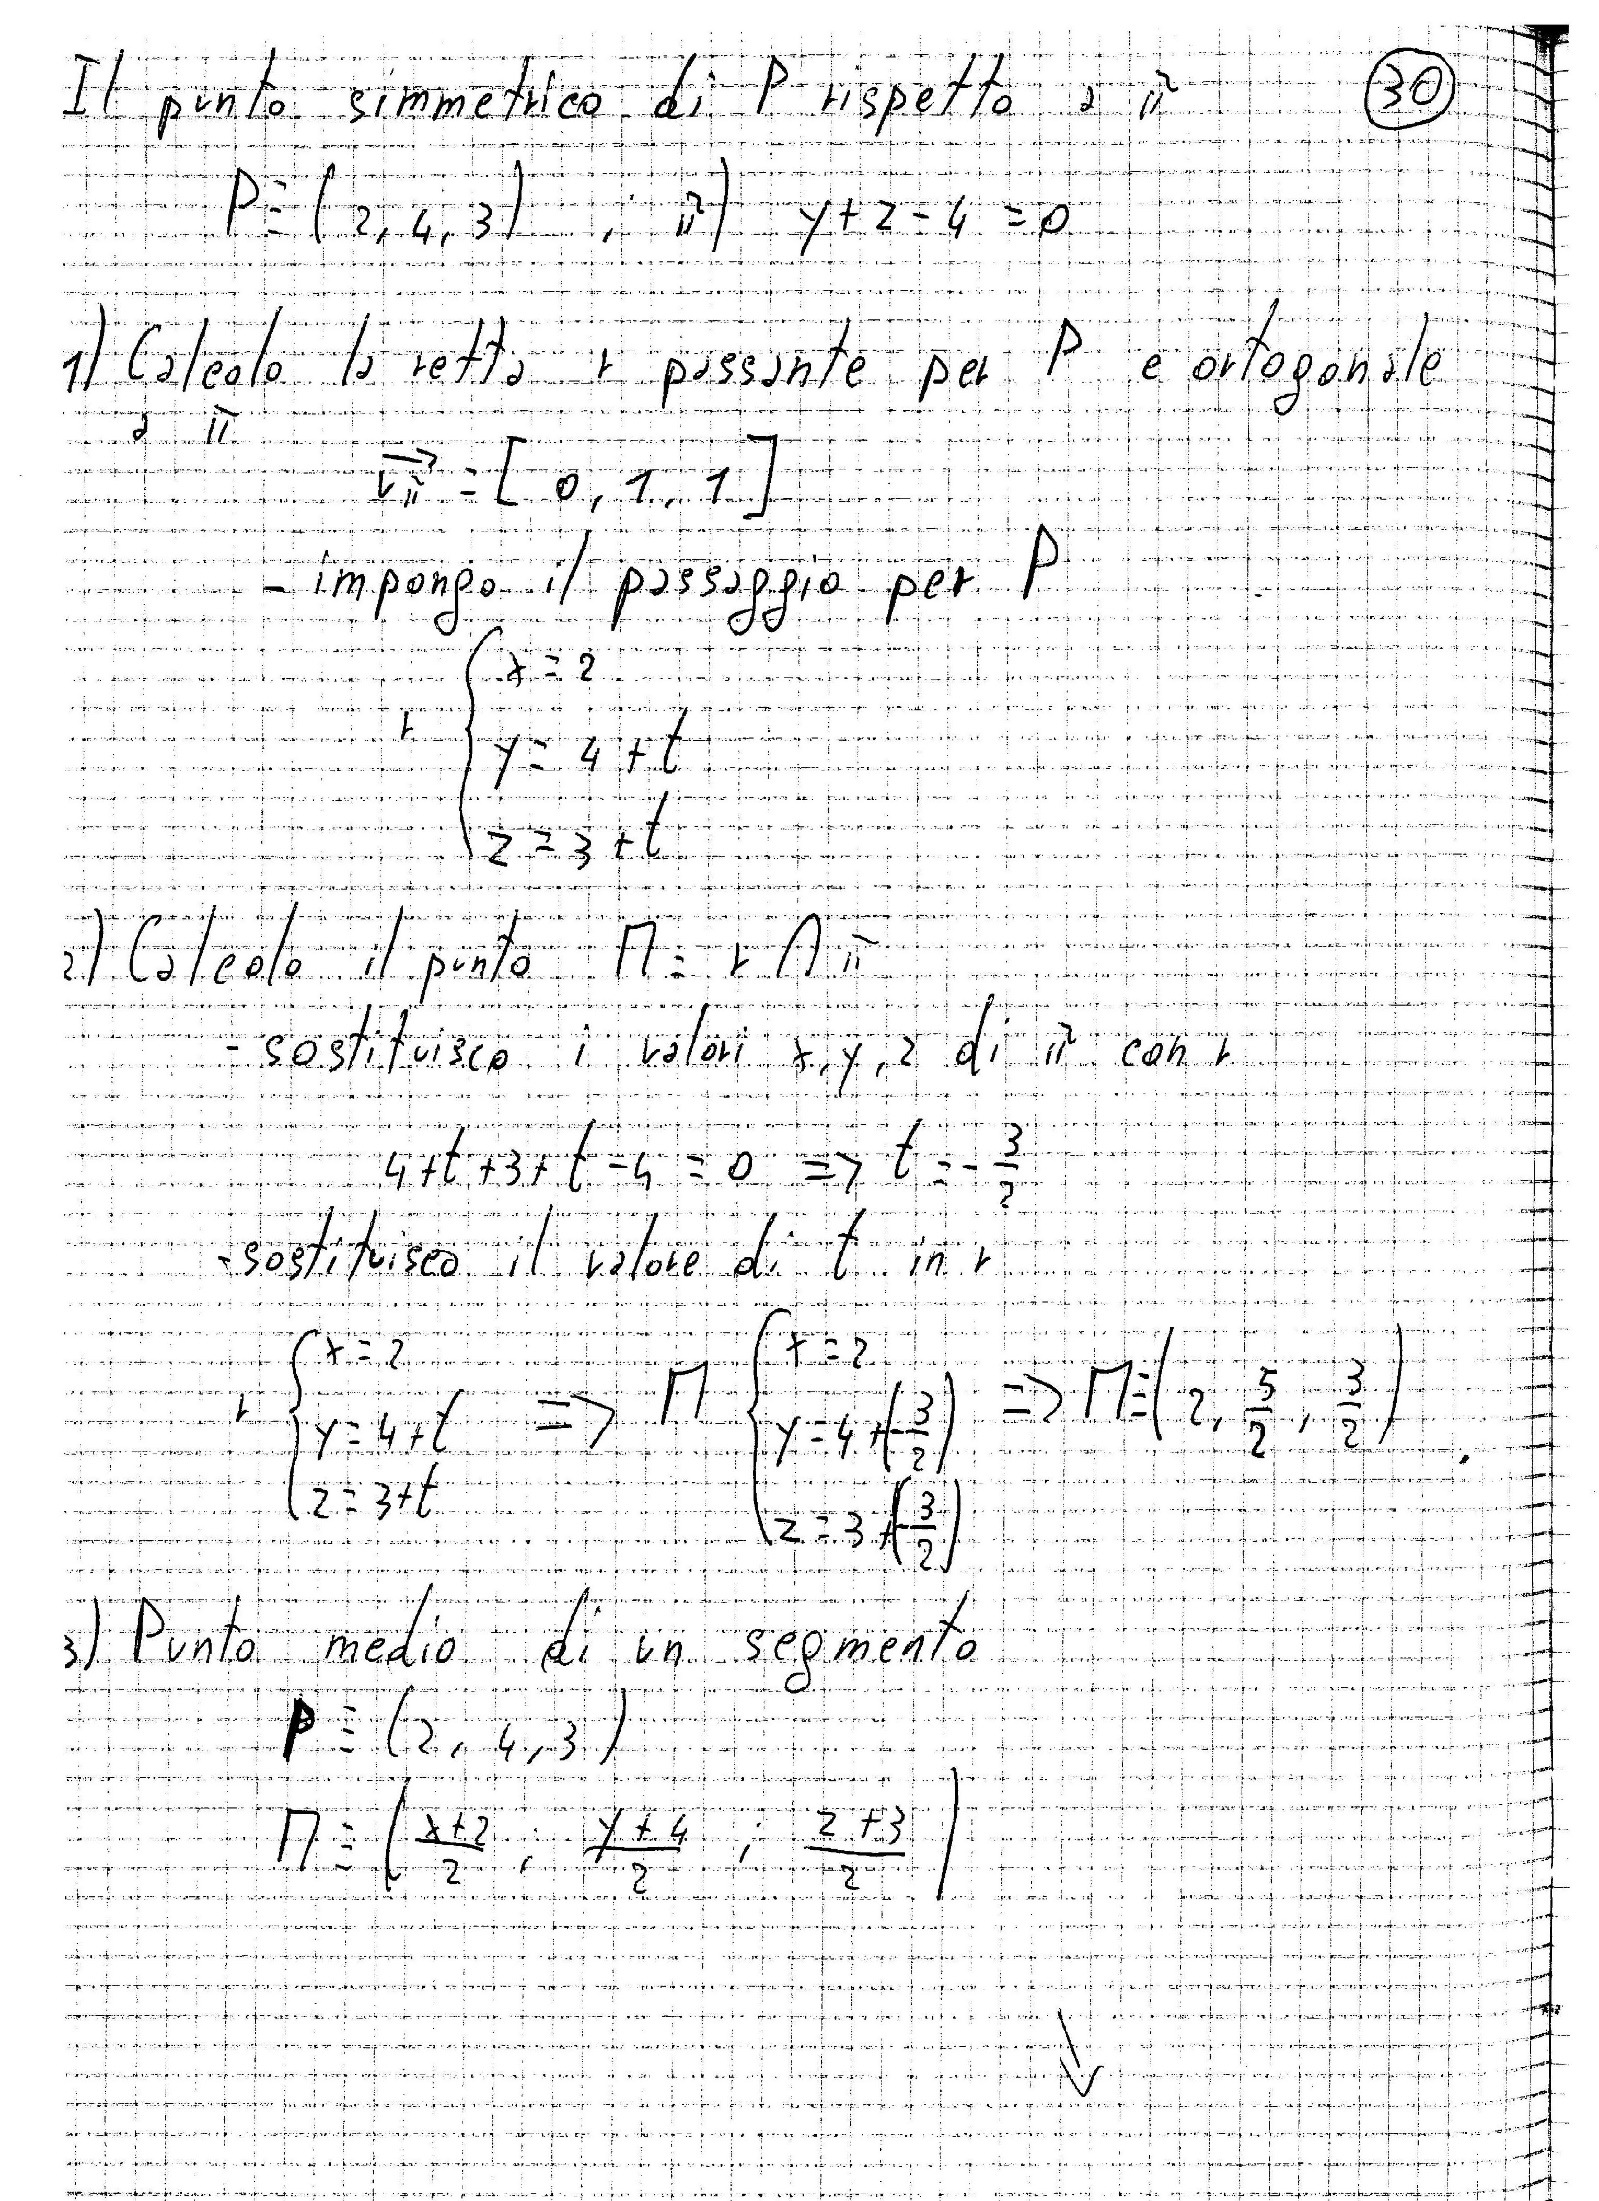 Il punto simmetrico di P rispetto a π 30
P≡(2,4,3) ; π) y+z-4=0
1) Calcolo la retta r passante per P e ortogonale
a π
vπ=[0,1,1]
- impongo il passaggio per P
x=2
r y=4+t
z=3+t
2) Calcolo il punto M=r∩π
- sostituisco i valori x,y,z di π con r
4+t+3+t-4=0 => t=-3/2
- sostituisco il valore di t in r
r {x=2 y=4+t z=3+t => M {x=2 y=4+(-3/2) z=3+(-3/2) => M≡(2, 5/2, 3/2)
3) Punto medio di un segmento
P≡(2,4,3)
M≡(x+2/2 ; y+4/2 ; z+3/2)